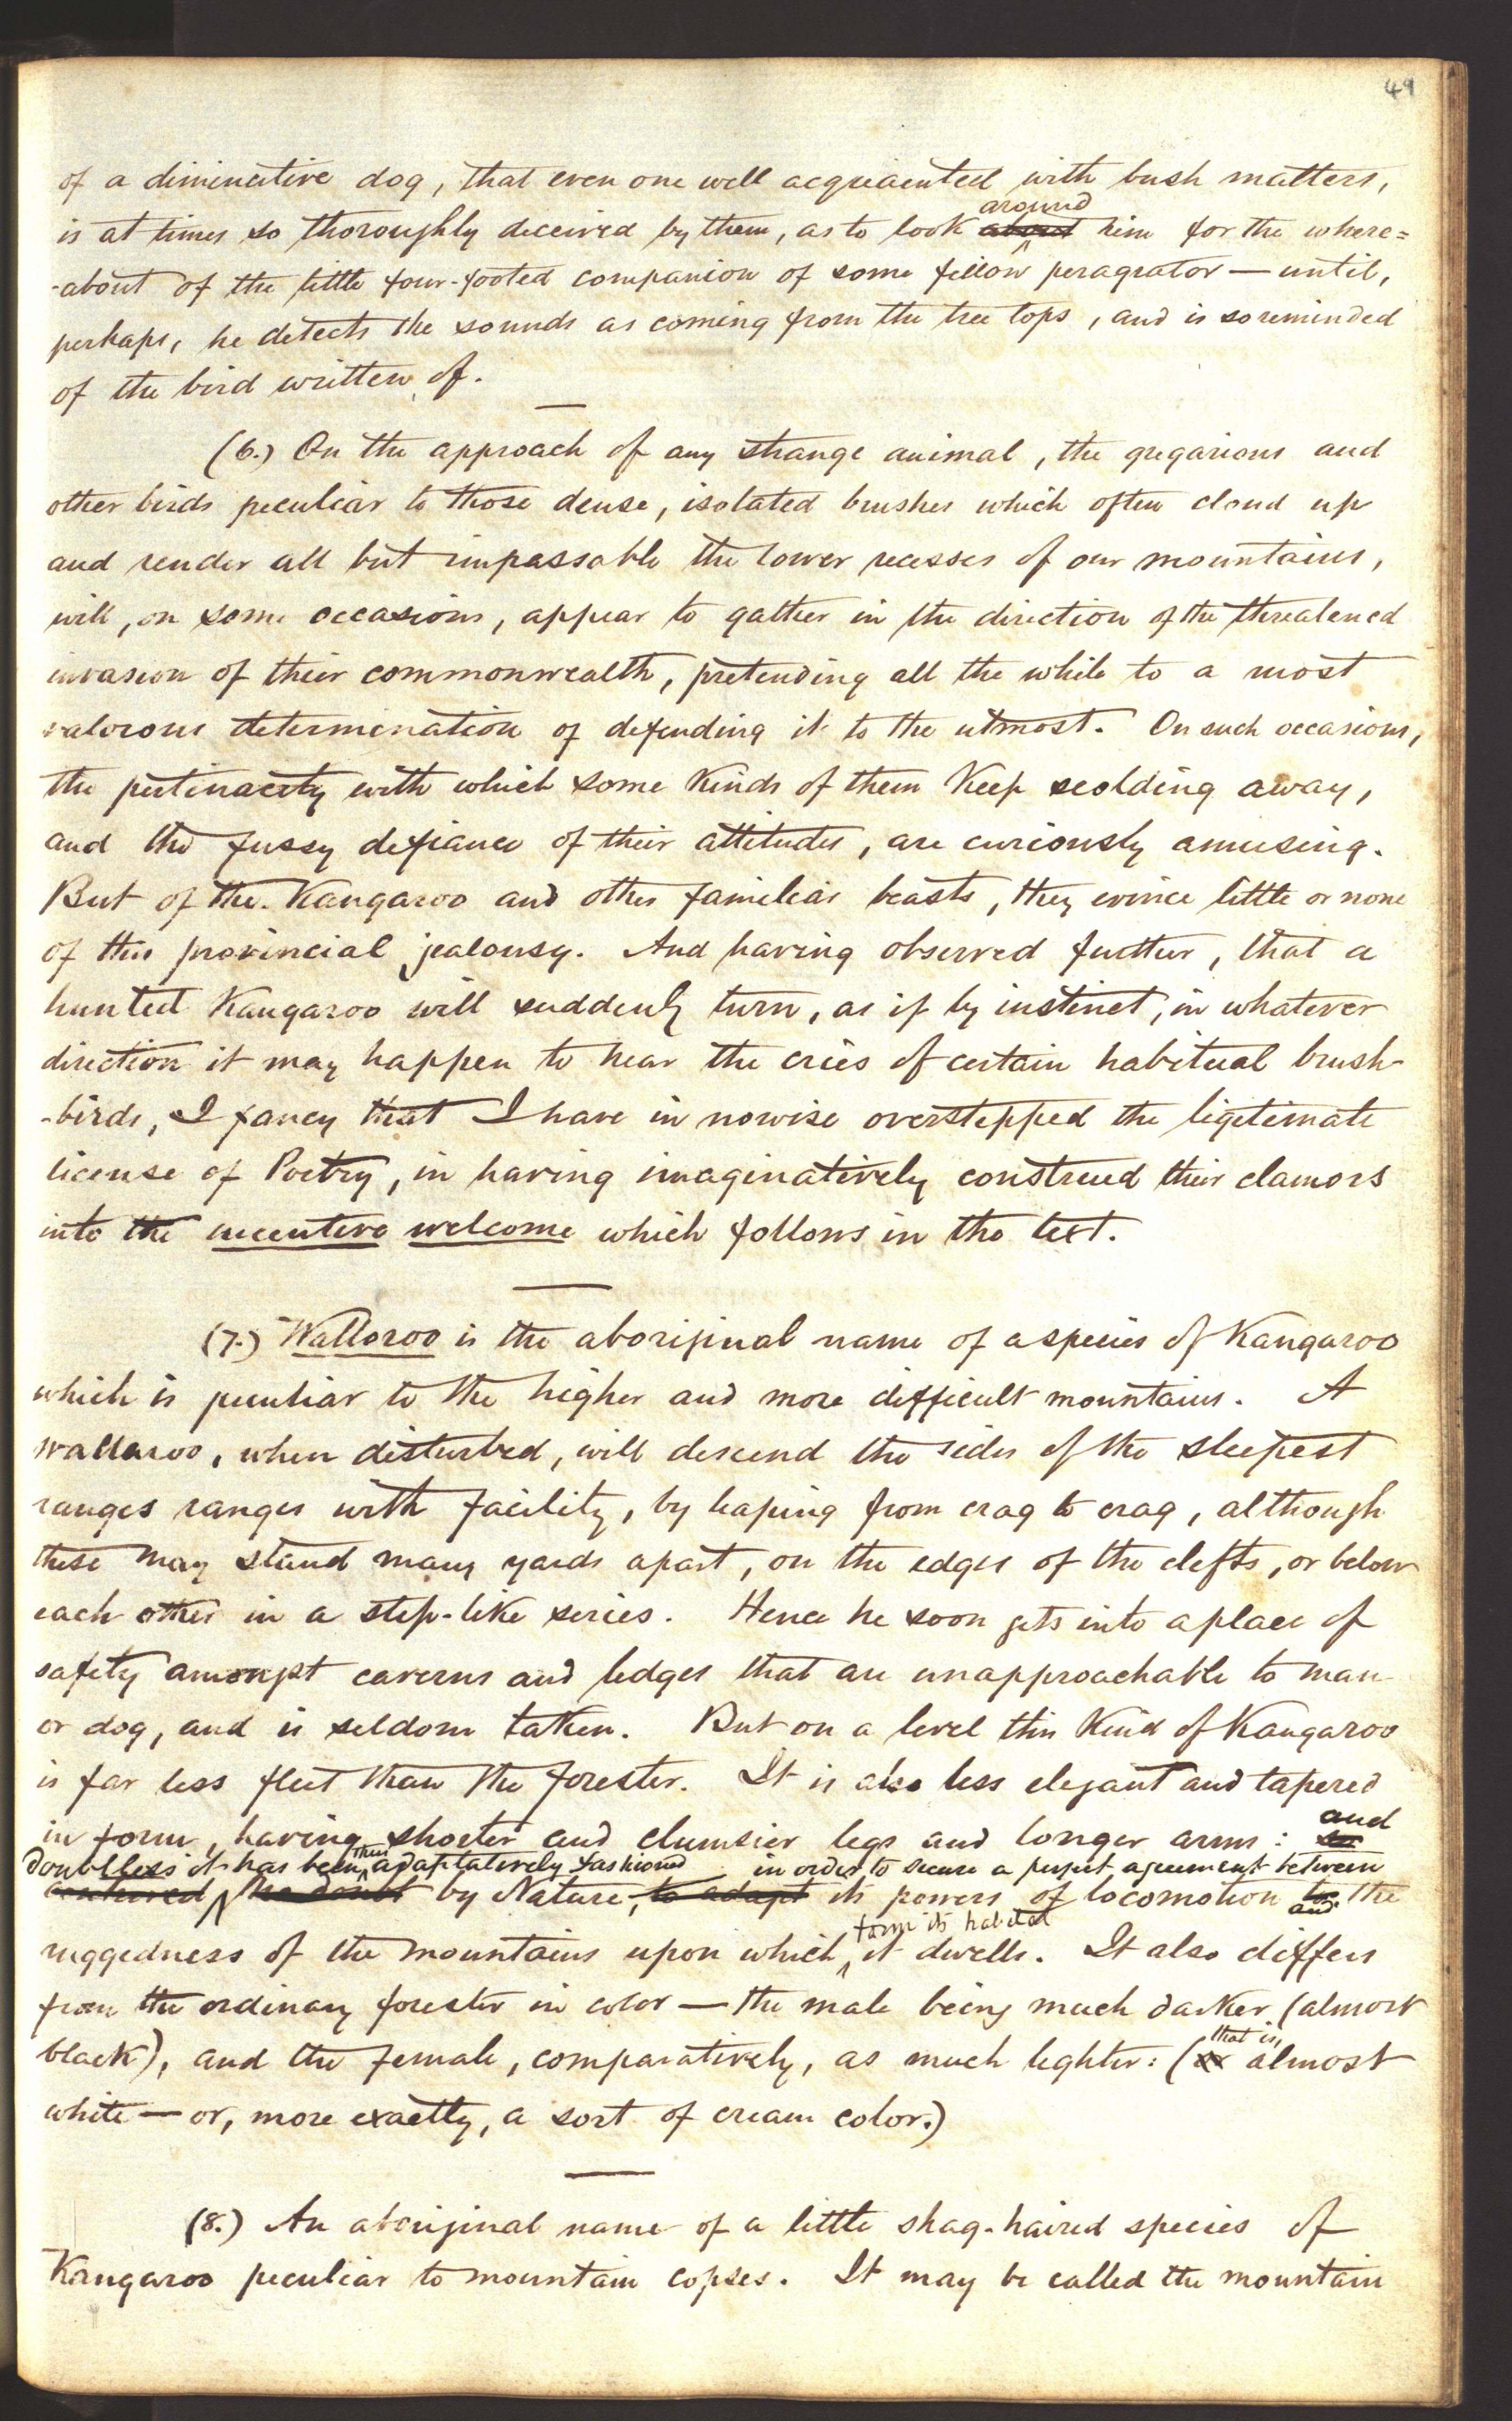 49
of a diminutive dog, that even one well acquainted with bush matters,
around
is at times so thoroughly deceived by them, as to look about him for the where=
-about of the little four-footed companion of some fellow peragrator — until,
perhaps, he detects the sounds as coming from the tree tops, and is so reminded
of the bird written of.
(6.) On the approach of any strange animal, the gregarious and
other birds peculiar to those dense, isolated brushes which often cloud up
and render all but impassable the lower recesses of our mountains,
will, on some occasions, appear to gather in the direction of the threatened
invasion of their commonwealth, pretending all the while to a most
valorous determination of defending it to the utmost. On such occasions,
the pertinacity with which some kinds of them keep scolding away,
and the fussy defiance of their attitudes, are curiously amusing.
But of the Kangaroo and other familiar beasts, they evince little or none
of this provincial jealousy. And having observed further, that a
hunted Kangaroo will suddenly turn, as if by instinct, in whatever
direction it may happen to hear the cries of certain habitual brush-
-birds, I fancy that I have in nowise overstepped the legitimate
license of Poetry, in having imaginatively construed their clamors
into the incentive welcome which follows in the text.
(7.) Wallaroo is the aboriginal name of a species of Kangaroo
which is peculiar to the higher and more difficult mountains. A
wallaroo, when disturbed, will descend the sides of the steepest
ranges ranges with facility, by leaping from crag to crag, although
these may stand many yards apart, on the edges of the clefts, or below
each other in a step-like series. Hence he soon gets into a place of
safety amongst caverns and ledges that are unapproachable to man
or dog, and is seldom taken. But on a level this kind of Kangaroo
is far less fleet than the forester. It is also less elegant and tapered
and
in form, having shorter and clumsier legs and longer arms:
doubtless it has been thus adaptatively fashioned in order to secure a perfect agreement between
contrived no doubt by Nature, to adapt its powers of locomotion to and the
form its habitat
ruggedness of the mountains upon which it dwells. It also differs
from the ordinary forester in color — the male being much darker (almost
that is,
black), and the female, comparatively, as much lighter: (or almost
white — or, more exactly, a sort of cream color.)
(8.) An aboriginal name of a little shag-haired species of
Kangaroo peculiar to mountain copses. It may be called the mountain